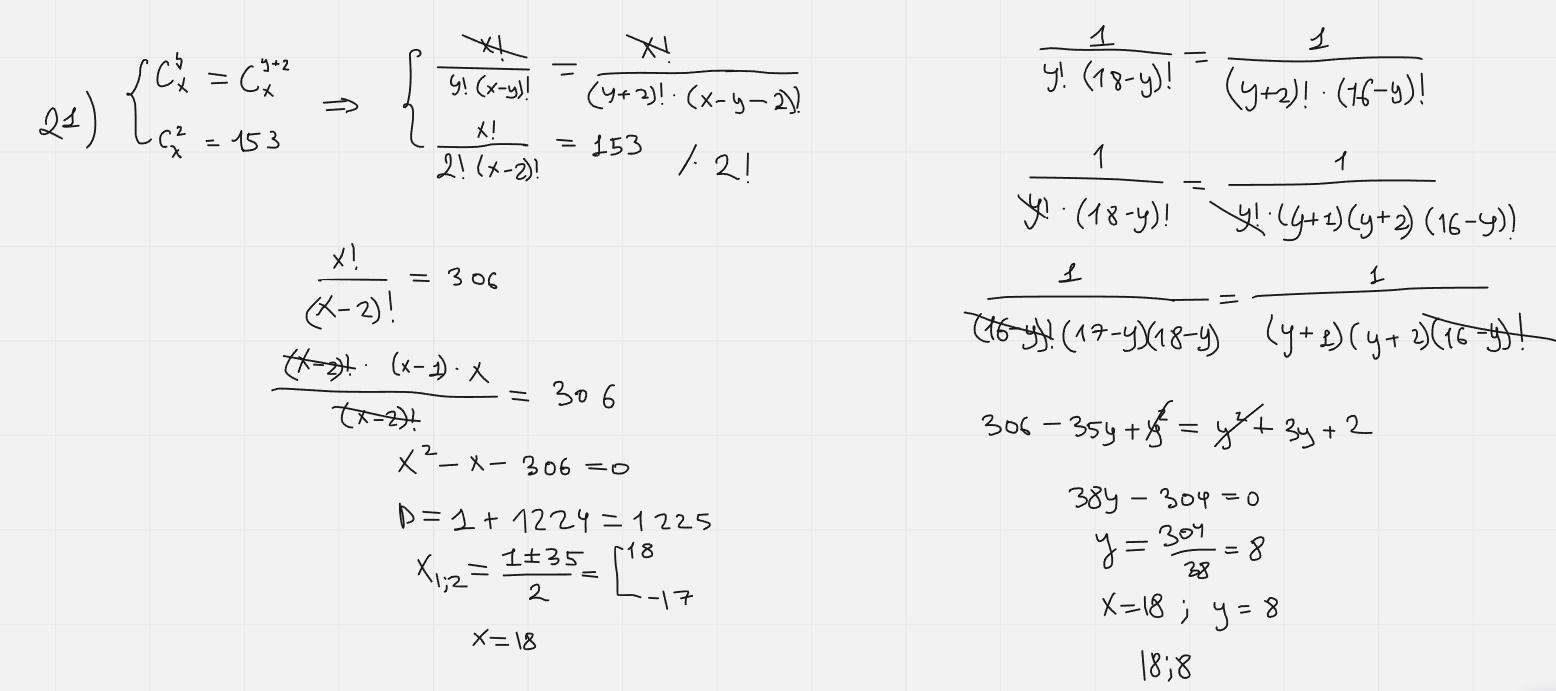 21) { C_x^y = C_x^{y+2} ⇒ { x!/(y!(x-y)!) = x!/((y+2)!·(x-y-2)!)
C_x^2 = 153 x!/(2!(x-2)!) = 153 /· 2!
x!/(x-2)! = 306
(x-2)!·(x-1)·x/(x-2)! = 306
x² - x - 306 = 0
D = 1 + 1224 = 1225
x_{1;2} = (1±35)/2 = [18 -17
x = 18
1/(y!·(18-y)!) = 1/((y+2)!·(16-y)!)
1/(y!·(18-y)!) = 1/(y!·(y+1)(y+2)(16-y)!)
1/((16-y)!(17-y)(18-y)) = 1/((y+1)(y+2)(16-y)!)
306 - 35y + y² = y² + 3y + 2
38y - 304 = 0
y = 304/38 = 8
x=18 ; y = 8
18;8